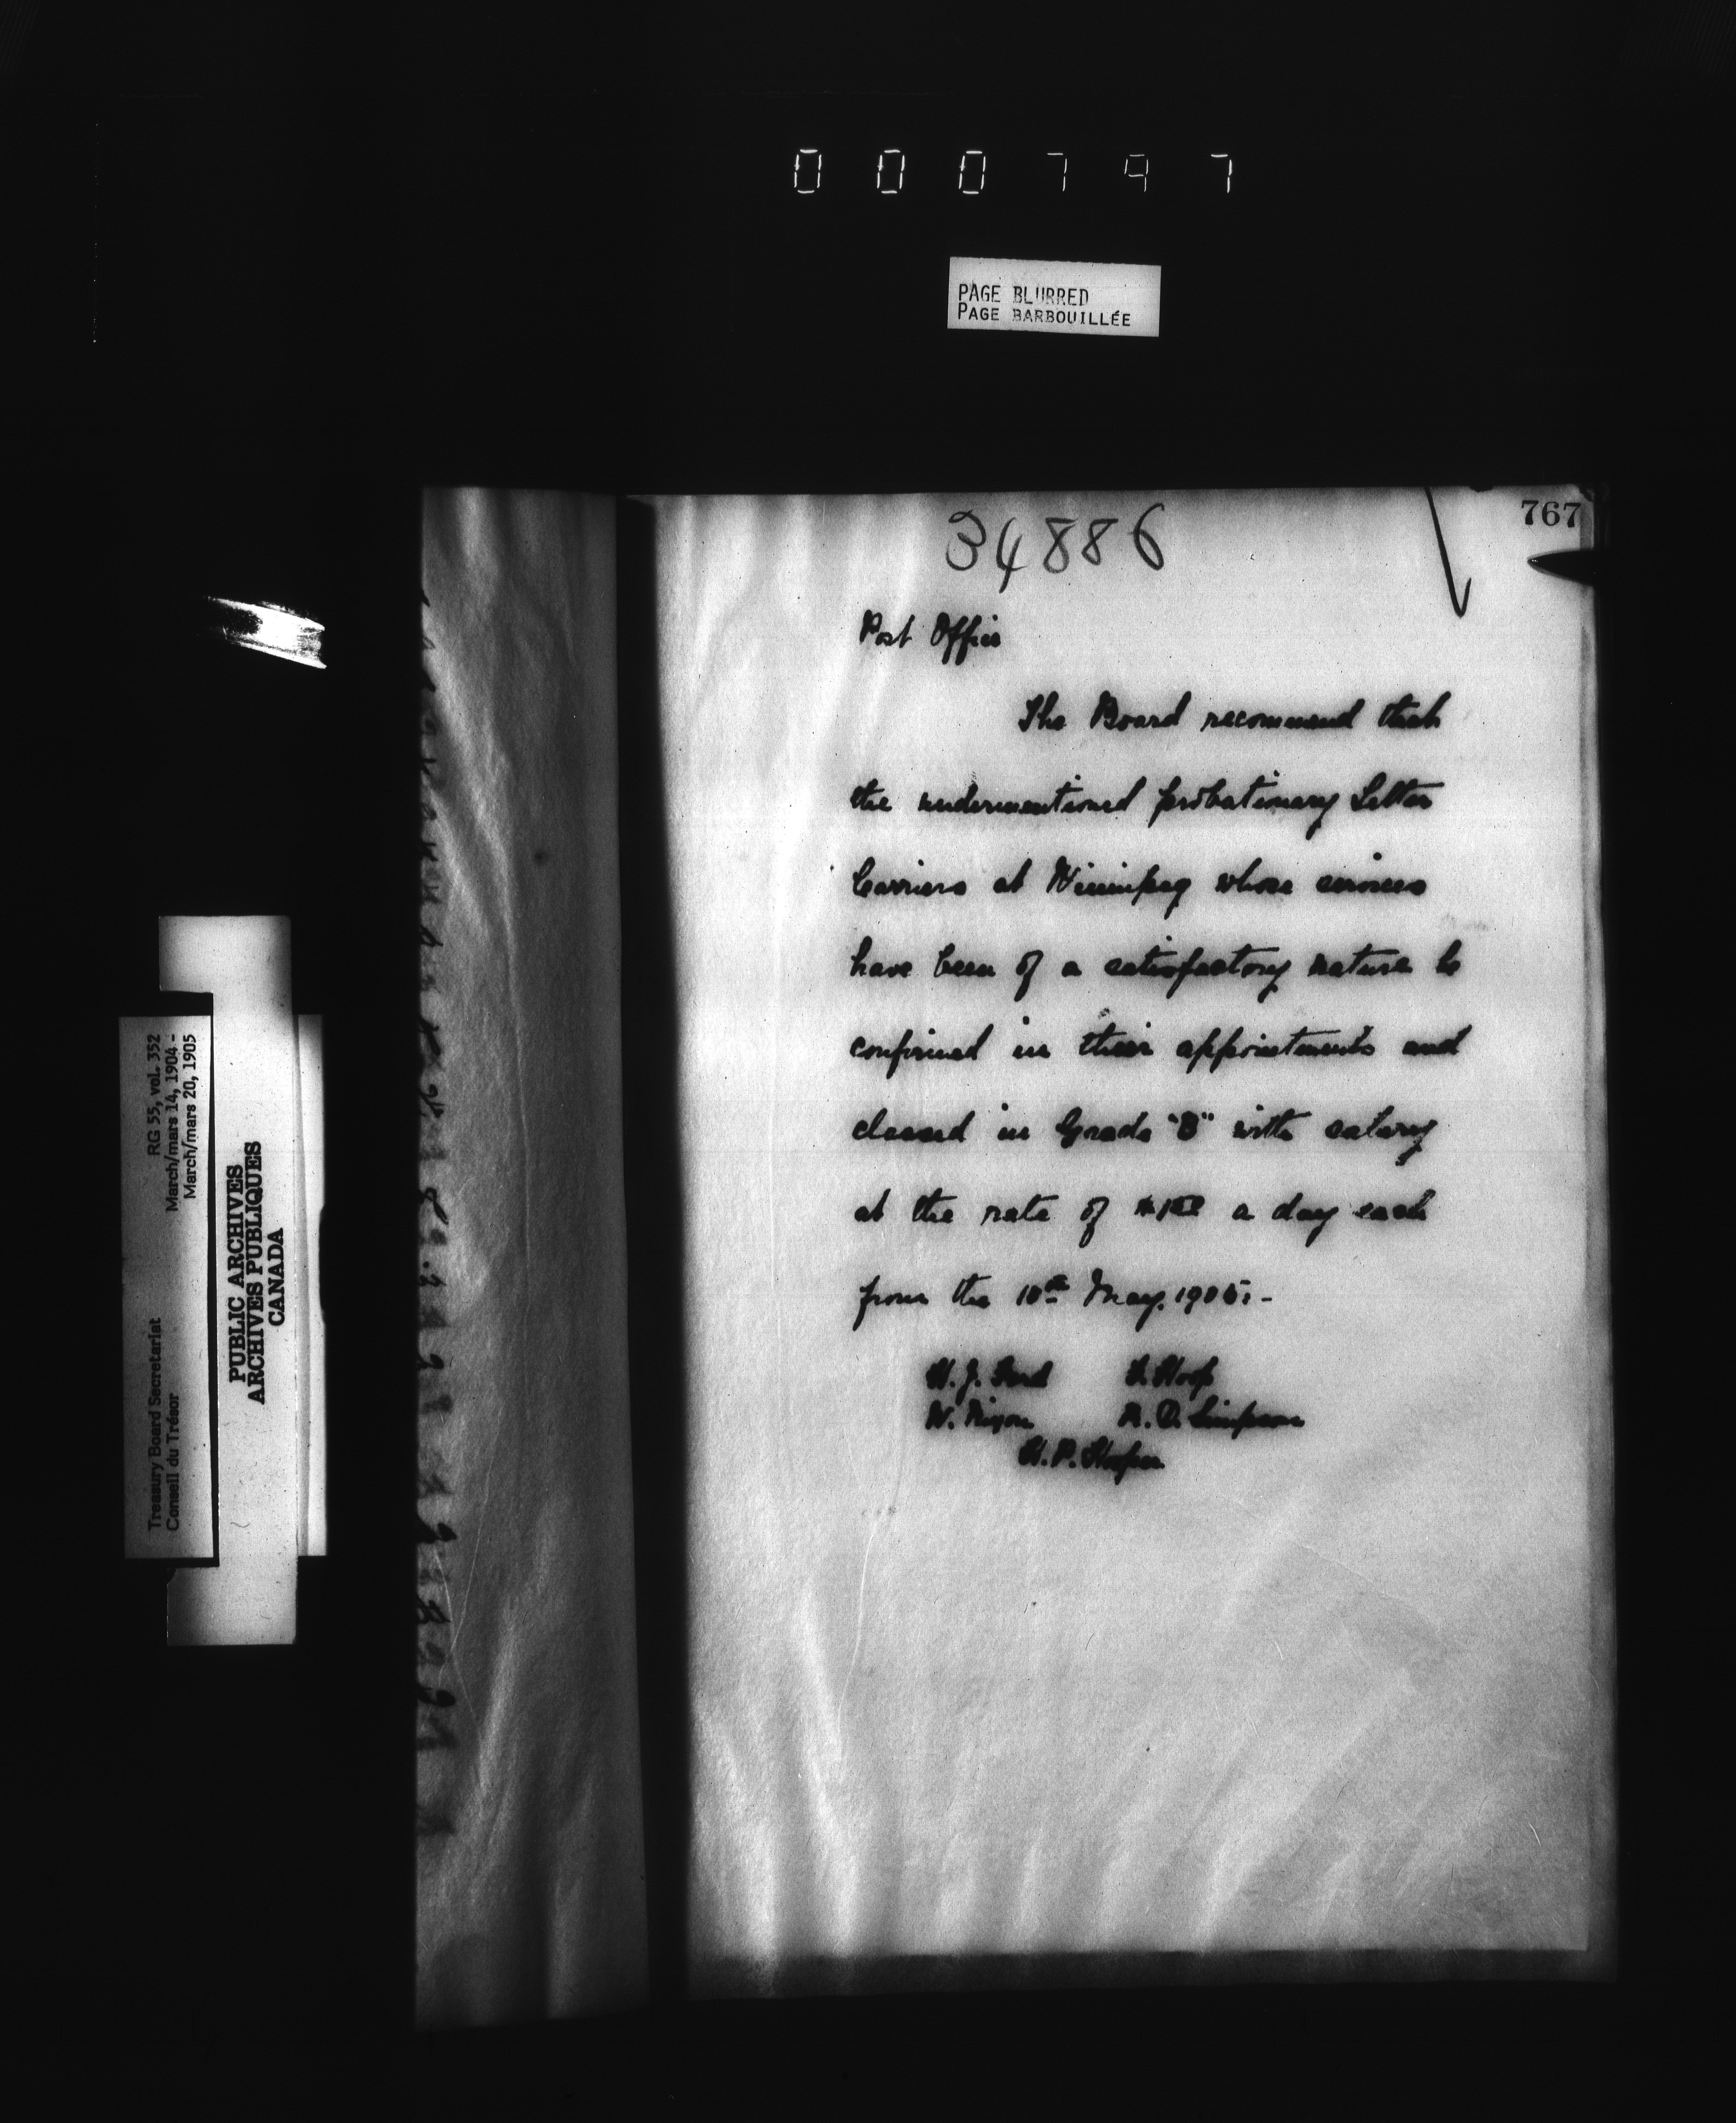 000797
PAGE BLURRED
PAGE BARBOUILLÉE
767
34886
Post Office
The Board recommend that
the undermentioned probationary Letter
Carriers at Winnipeg whose services
have been of a satisfactory nature be
confirmed in their appointments and
classed in Grade "B" with salary
at the rate of a day each
from the 10th May. 1905:-
H. J. Ford F. Hoop
W. Nixon R. D. Simpson
H. P. Hooper
Treasury Board Secretariat RG 55, vol. 352
Conseil du Trésor March/mars 14, 1904 -
March/mars 20, 1905
PUBLIC ARCHIVES
ARCHIVES PUBLIQUES
CANADA